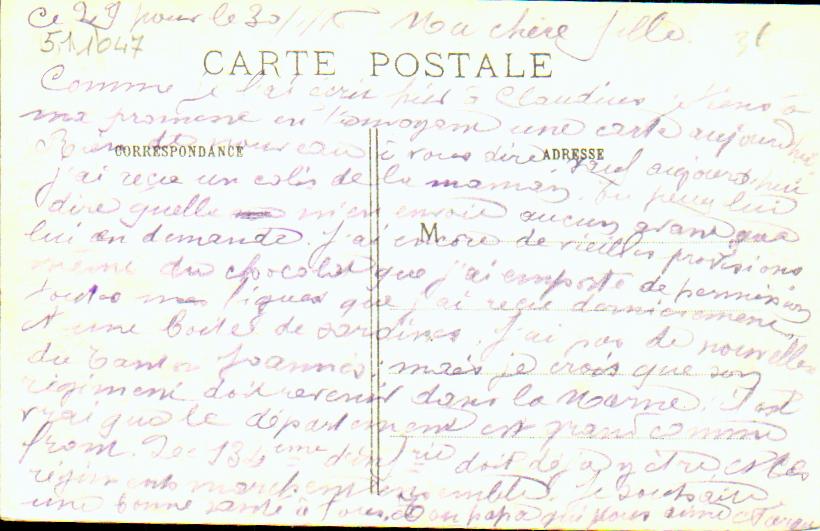 Ce 29 pour le 30/1/16 Ma chère fille. 31
511047
CARTE POSTALE
Comme je l'ai écrit hier à Claudius je tiens à
ma promesse en t'envoyant une carte aujourd'hui
CORRESPONDANCE
ADRESSE
Rien de nouveau à vous dire sauf aujourd'hui
j'ai reçu un colis de la maman. tu peux lui
dire quelle m'en envoie aucun avant que
M
lui en demande. J'ai encore de vieilles provisions
même du chocolat que j'ai emporté de permission
toutes mes figues que j'ai reçu dernièrement
et une boites de sardines. J'ai pas de nouvelles
du Joannès, mais je crois que son
régiment doit revenir dans la Marne. il est
vrai que le département est grand comme
front. Le 134ème d'inf rie doit déjà y être et les
régiments marchent ensemble. Je souhaite
une bonne santé à tous. Ton papa qui vous aime